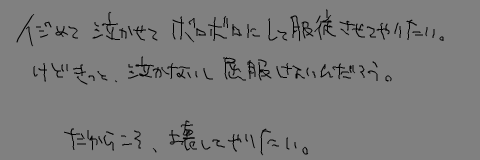 イジめて泣かせてボロボロにして服従させてやりたい。
けどきっと、泣かないし屈服しないんだろう。
だからこそ、壊してやりたい。